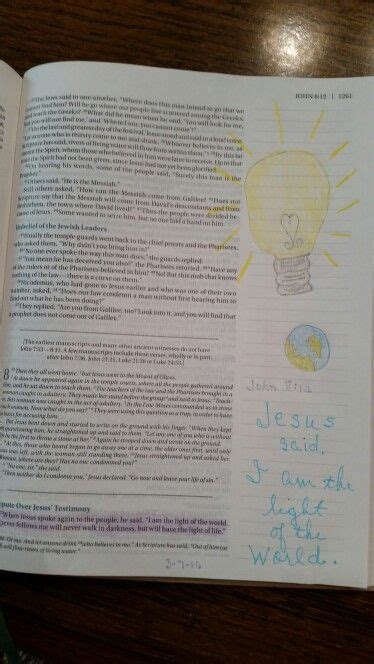 JOHN 8:12 | 1261
35The Jews said to one another, "Where does this man intend to go that we
cannot find him? Will he go where our people live scattered among the Greeks,
and teach the Greeks? 36What did he mean when he said, 'You will look for me,
but you will not find me,' and 'Where I am, you cannot come'?"
37On the last and greatest day of the festival, Jesus stood and said in a loud voice,
"Let anyone who is thirsty come to me and drink. 38Whoever believes in me, as
Scripture has said, rivers of living water will flow from within them." 39By this he
meant the Spirit, whom those who believed in him were later to receive. Up to that
time the Spirit had not been given, since Jesus had not yet been glorified.
40On hearing his words, some of the people said, "Surely this man is the
Prophet."
41Others said, "He is the Messiah."
Still others asked, "How can the Messiah come from Galilee? 42Does not
Scripture say that the Messiah will come from David's descendants and from
Bethlehem, the town where David lived?" 43Thus the people were divided be-
cause of Jesus. 44Some wanted to seize him, but no one laid a hand on him.
Unbelief of the Jewish Leaders
45Finally the temple guards went back to the chief priests and the Pharisees,
who asked them, "Why didn't you bring him in?"
46"No one ever spoke the way this man does," the guards replied.
47"You mean he has deceived you also?" the Pharisees retorted. 48"Have any
of the rulers or of the Pharisees believed in him? 49No! But this mob that knows
nothing of the law—there is a curse on them."
50Nicodemus, who had gone to Jesus earlier and who was one of their own
number, asked, 51"Does our law condemn a man without first hearing him to
find out what he has been doing?"
52They replied, "Are you from Galilee, too? Look into it, and you will find that
a prophet does not come out of Galilee."
[The earliest manuscripts and many other ancient witnesses do not have
John 7:53—8:11. A few manuscripts include these verses, wholly or in part,
after John 7:36, John 21:25, Luke 21:38 or Luke 24:53.]
8 53Then they all went home, 1but Jesus went to the Mount of Olives.
2At dawn he appeared again in the temple courts, where all the people gathered around
him, and he sat down to teach them. 3The teachers of the law and the Pharisees brought in a
woman caught in adultery. They made her stand before the group 4and said to Jesus, "Teach-
er, this woman was caught in the act of adultery. 5In the Law Moses commanded us to stone
such women. Now what do you say?" 6They were using this question as a trap, in order to have
a basis for accusing him.
But Jesus bent down and started to write on the ground with his finger. 7When they kept
on questioning him, he straightened up and said to them, "Let any one of you who is without
sin be the first to throw a stone at her." 8Again he stooped down and wrote on the ground.
9At this, those who heard began to go away one at a time, the older ones first, until only
Jesus was left, with the woman still standing there. 10Jesus straightened up and asked her,
"Woman, where are they? Has no one condemned you?"
11"No one, sir," she said.
"Then neither do I condemn you," Jesus declared. "Go now and leave your life of sin."
Dispute Over Jesus' Testimony
12When Jesus spoke again to the people, he said, "I am the light of the world.
Whoever follows me will never walk in darkness, but will have the light of life."
"Out of him (or
will flow rivers of living water."
John 8:12
Jesus
said,
I am the
light
of the
World.
3-7-16